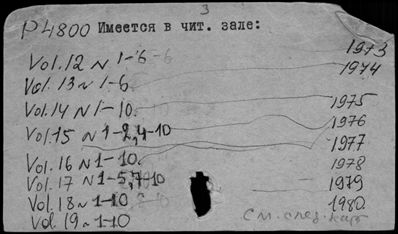 3
P4800 Имеется в чит. зале:
Vol. 12 N 1-6 1973
Vol. 13 N 1-6. 1974
Vol. 14 N 1-10. 1975
Vol. 15 N 1-2,4-10 1976
1977
Vol. 16 N 1-10. 1978
Vol. 17 N 1-5,7-10 1979
Vol. 18 N 1-10 1980
Vol. 19 N 1-10 См. спец. карт